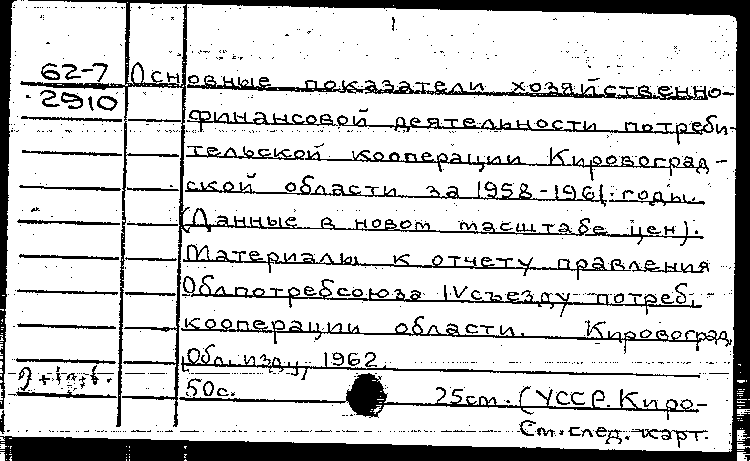 1
62-7 Основные показатели хозяйственно-
2910 финансовой деятельности потреби-
тельской кооперации Кировоград-
ской области за 1958-1961 годы.
(Данные в новом масштабе цен).
Материалы к отчету правления
Облпотребсоюза IV съезду потреб.
кооперации области. Кировоград,
Обл. изд., 1962.
50с. 25см. (УССР. Киро-
См. след. карт.